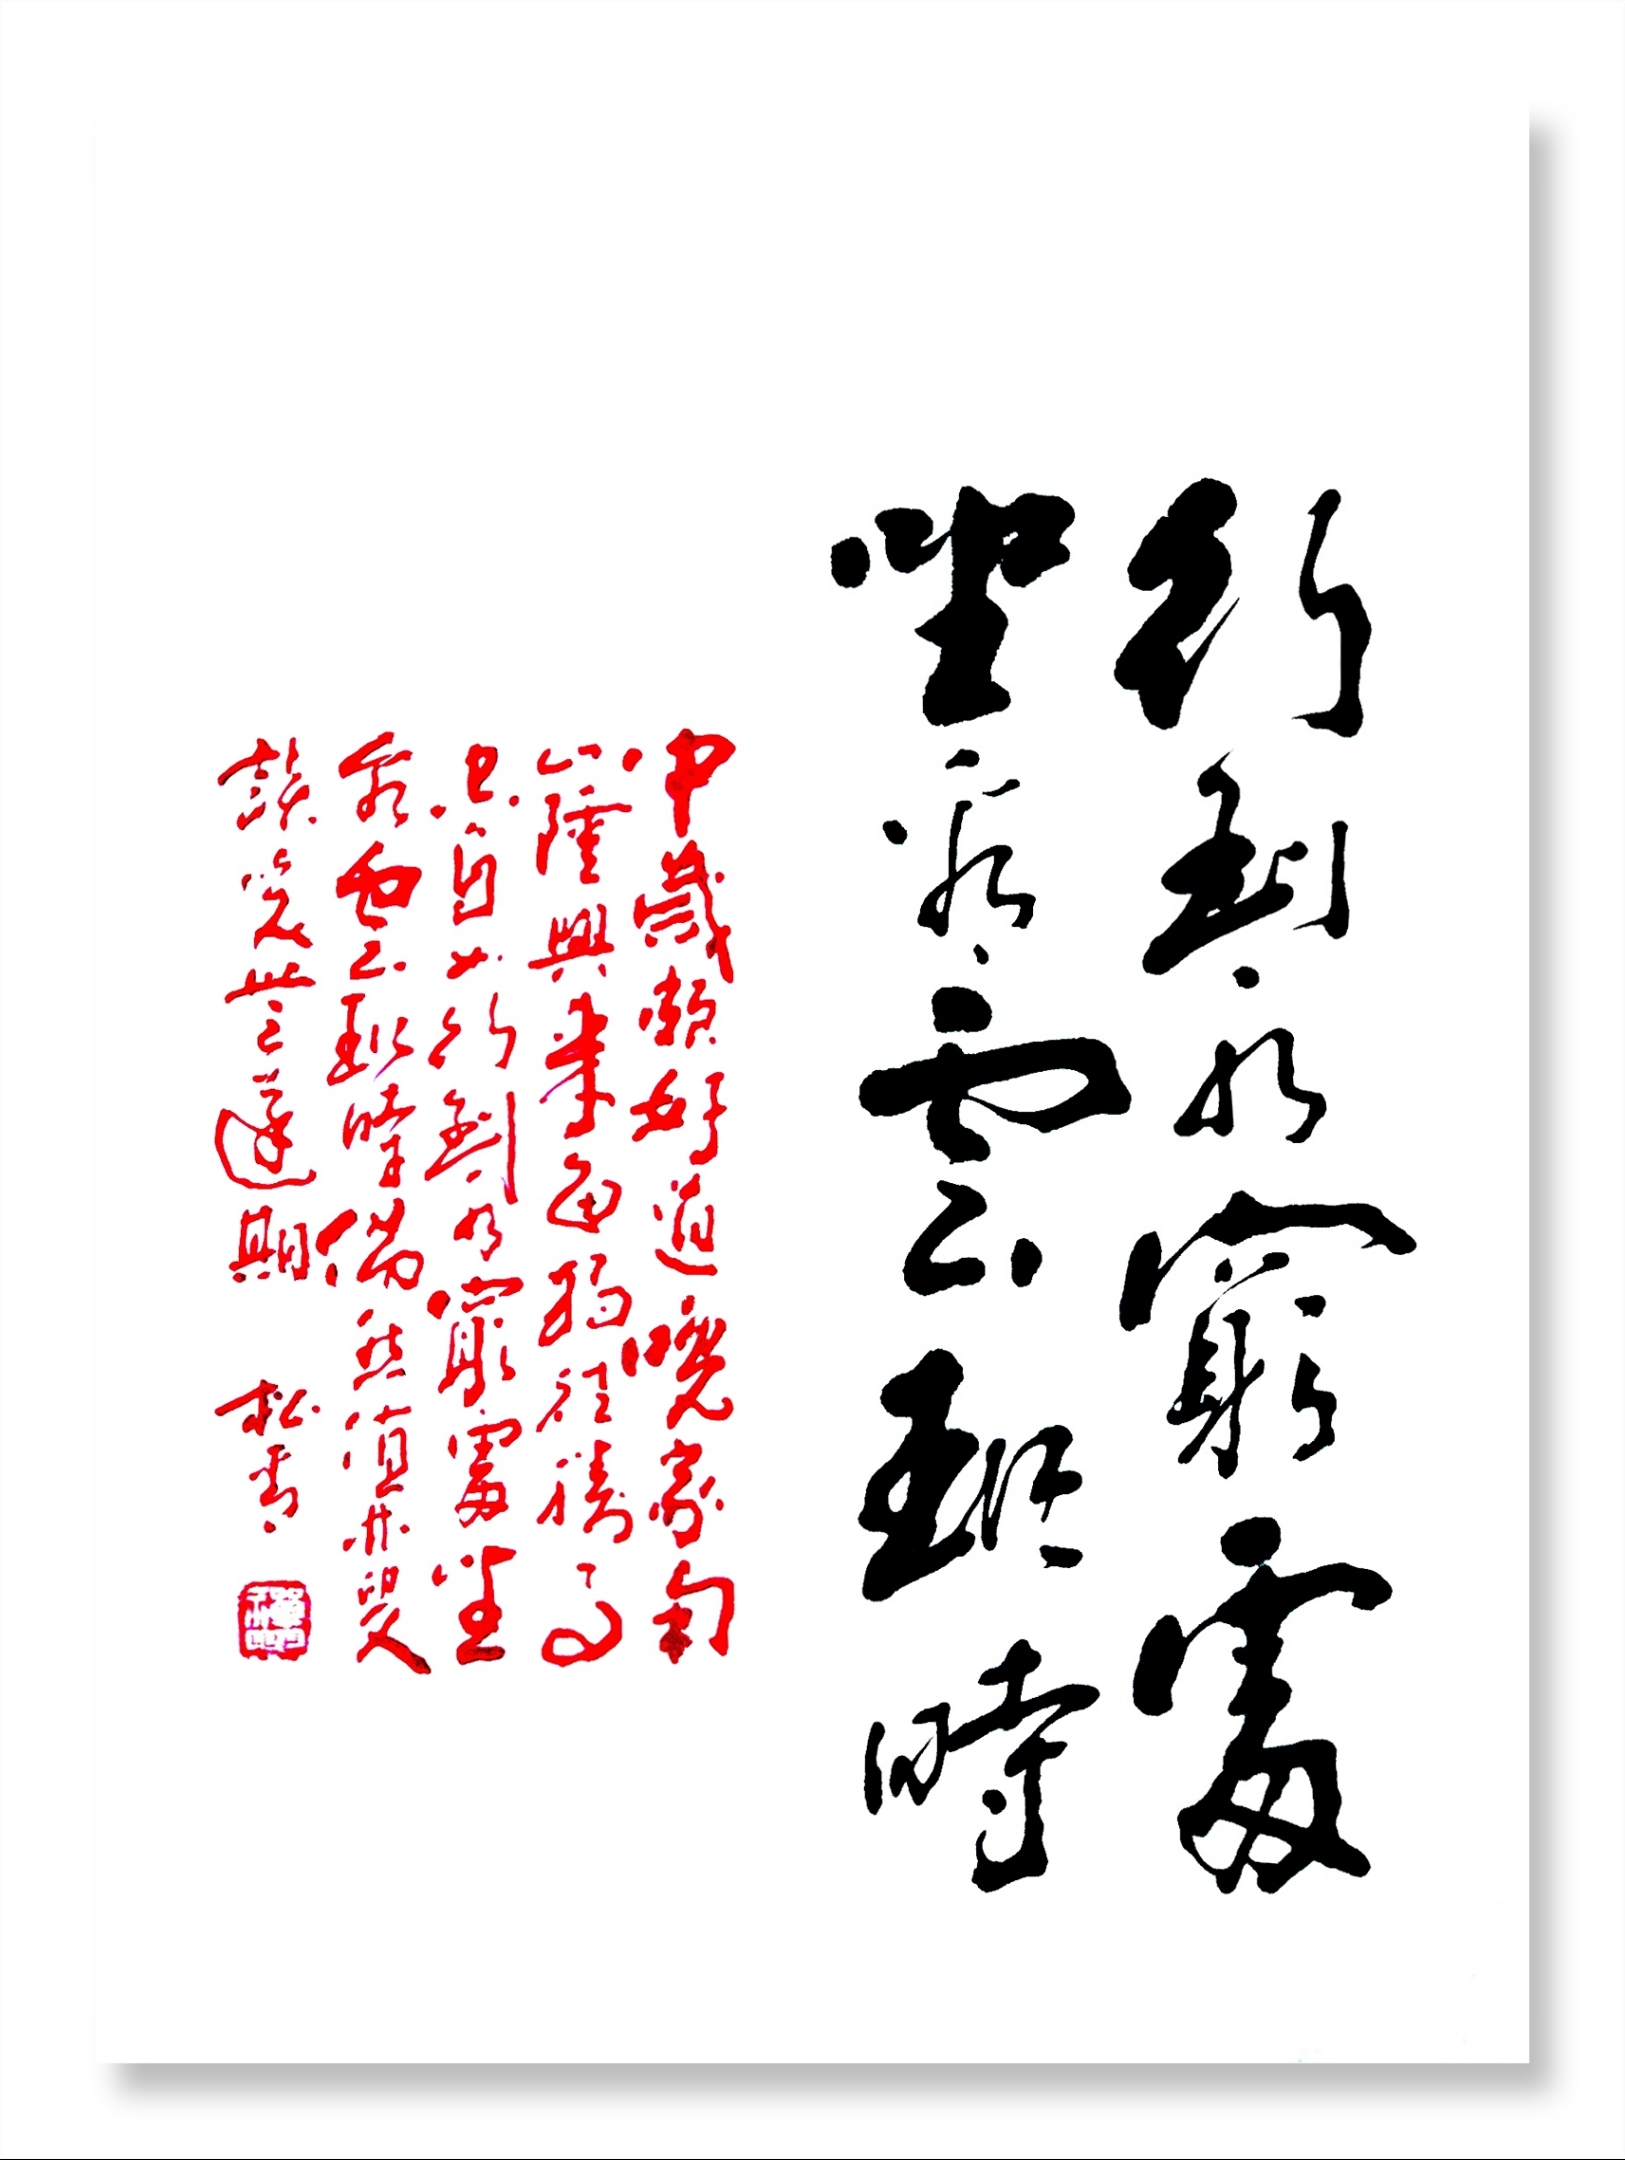 行到水窮處
坐看雲起時
中歲頗好道晚家南
山陲興來每獨往勝事
空自知行到水窮處坐
看雲起時偶然值林叟
談笑無還期 松